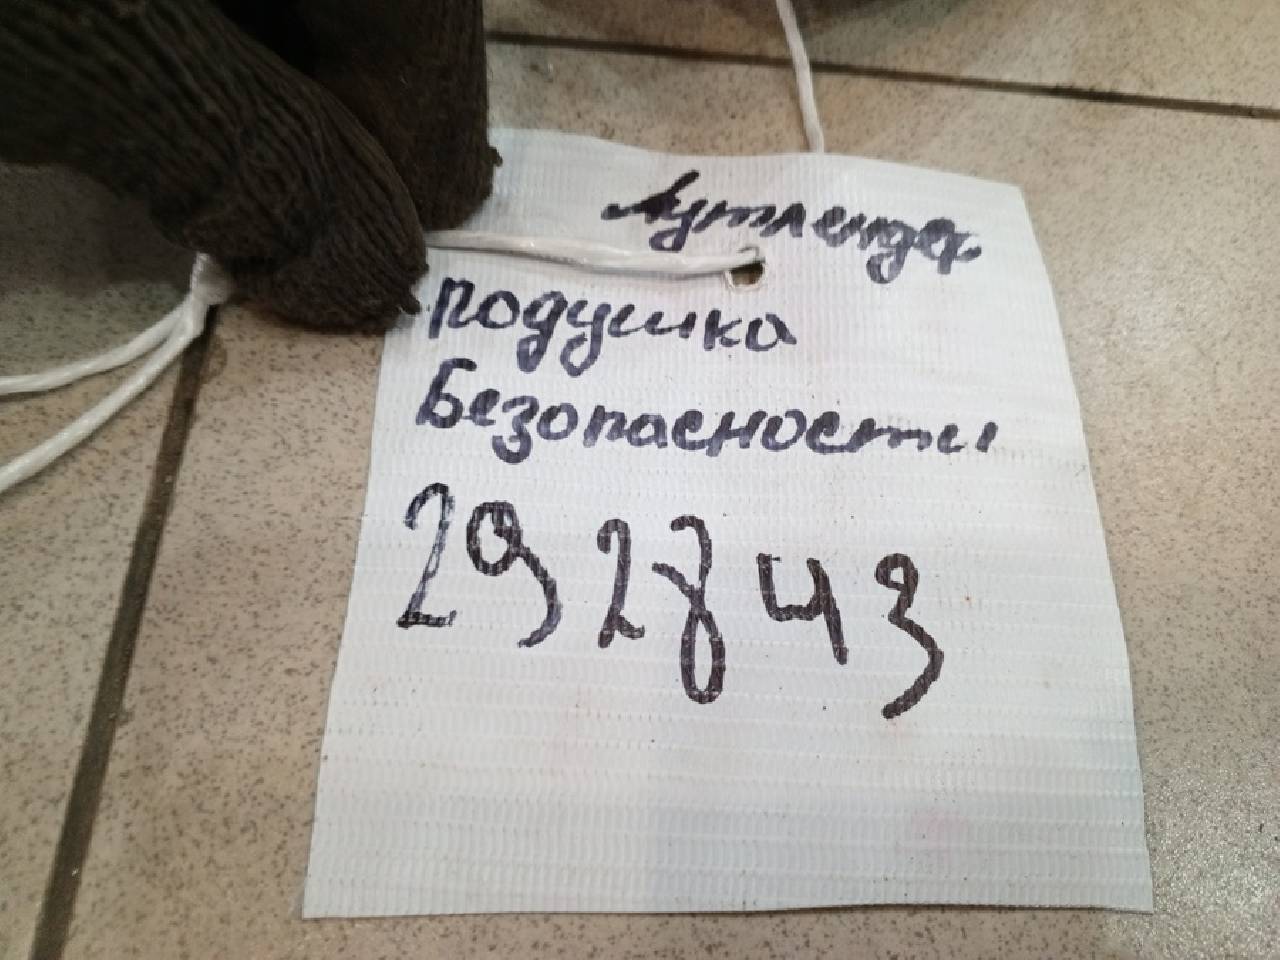 Аутлендер
подушка
Безопасности
292843